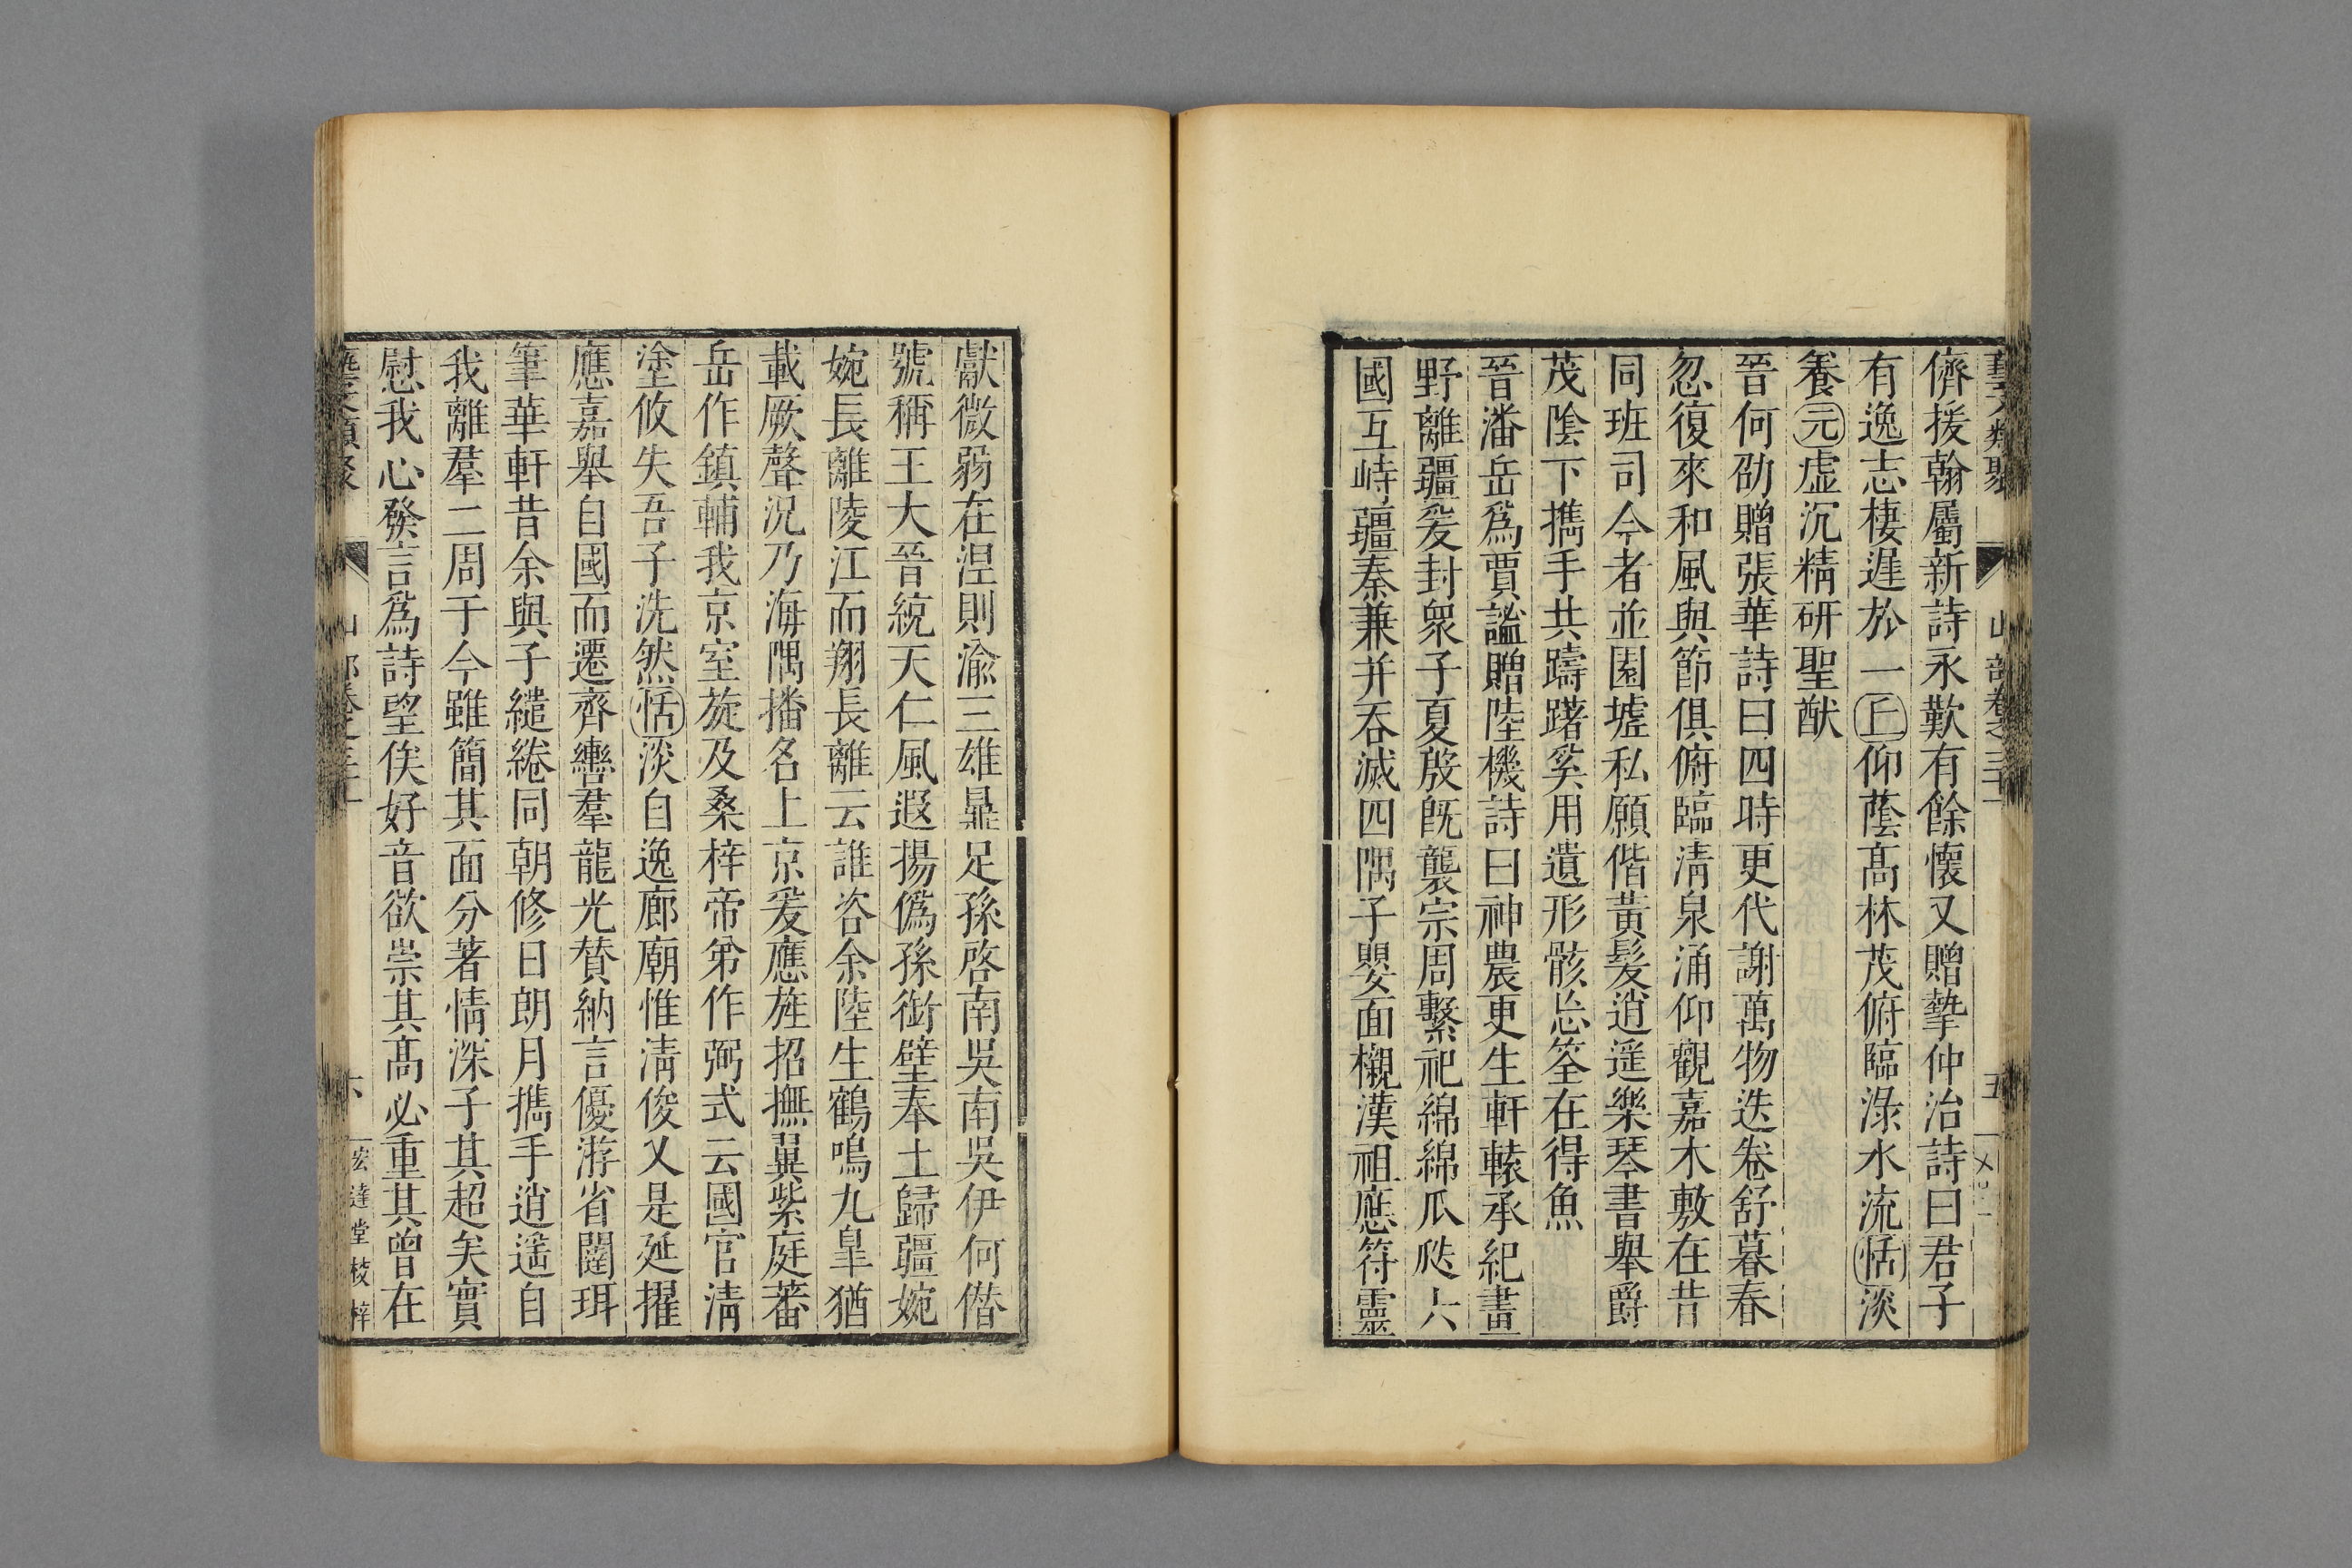 藝文類聚 山部卷之三十一 五
儕援翰屬新詩永歎有餘懷又贈摯仲治詩曰君子
有逸志棲遲於一丘仰蔭高林茂俯臨淥水流恬淡
養元虛沉精研聖猷
晉何劭贈張華詩曰四時更代謝萬物迭卷舒暮春
忽復來和風與節俱俯臨清泉涌仰觀嘉木敷在昔
同班司今者並園墟私願偕黃髮逍遥樂琴書舉爵
茂陰下攜手共躊躇奚用遺形骸忘筌在得魚
晉潘岳爲賈謐贈陸機詩曰神農更生軒轅承紀畫
野離疆爰封衆子夏殷旣襲宗周繫祀綿綿瓜瓞六
國互峙疆秦兼并吞滅四隅子嬰面櫬漢祖應符靈
獻微弱在涅則渝三雄鼎足孫啓南吳南吳伊何僭
號稱王大晉統天仁風遐揚僞孫銜璧奉土歸疆婉
婉長離陵江而翔長離云誰咨余陸生鶴鳴九皐猶
載厥聲況乃海隅播名上京爰應旌招撫翼紫庭蕃
岳作鎮輔我京室旋及桑梓帝弟作弼式云國官清
塗攸失吾子洗然恬淡自逸廊廟惟清俊又是延擢
應嘉舉自國而遷齊轡羣龍光贊納言優游省闥珥
筆華軒昔余與子繾綣同朝修日朗月攜手逍遥自
我離羣二周于今雖簡其面分著情深子其超矣實
慰我心發言爲詩望俟好音欲崇其高必重其曾在
藝文類聚 山部卷之三十一 六 宏達堂校梓